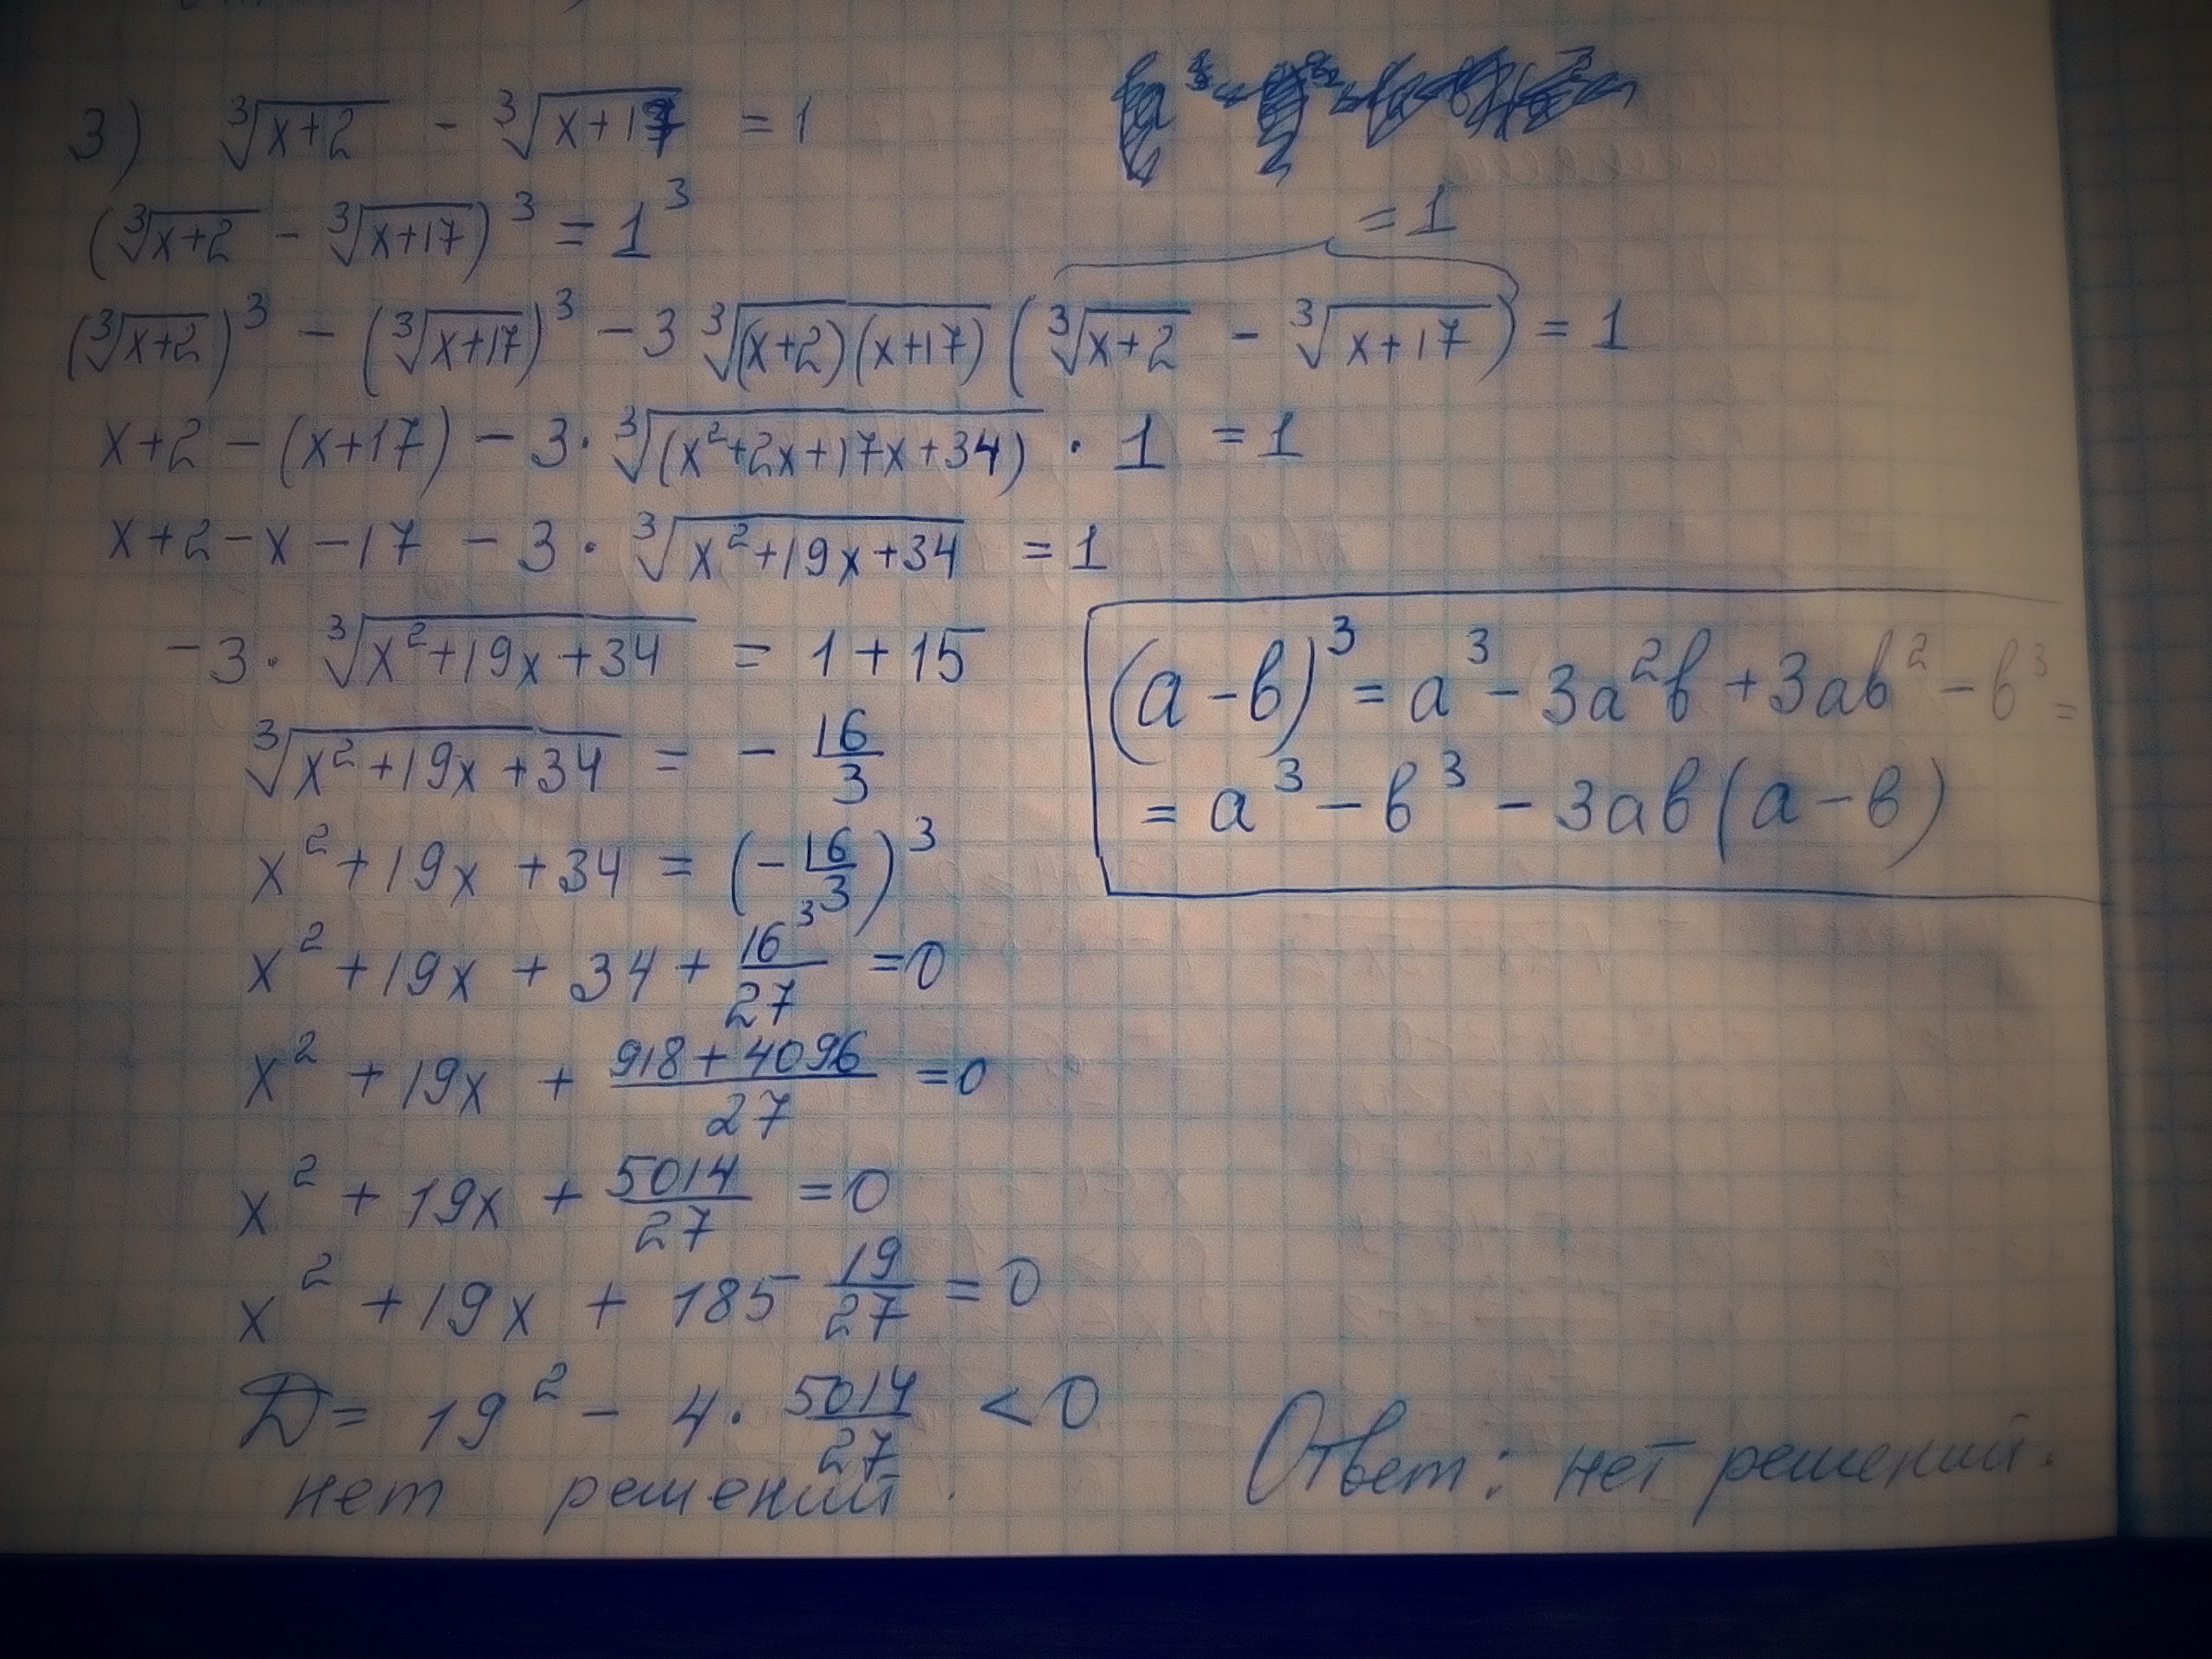 3) ∛(x+2) - ∛(x+17) = 1
(∛(x+2) - ∛(x+17))³ = 1³
= 1
(∛(x+2))³ - (∛(x+17))³ - 3∛((x+2)(x+17)) (∛(x+2) - ∛(x+17)) = 1
x+2 - (x+17) - 3·∛(x²+2x+17x+34) · 1 = 1
x+2-x-17 - 3·∛(x²+19x+34) = 1
-3·∛(x²+19x+34) = 1+15
∛(x²+19x+34) = - 16/3
x²+19x+34 = (-16/3)³
x²+19x+34+ 16³/27 =0
x² +19x + (918+4096)/27 =0
x² + 19x + 5014/27 =0
x² +19x + 185 19/27 = 0
Д= 19² - 4· 5014/27 < 0
нет решений.
(a-в)³ = a³ - 3a²в + 3aв² - в³ =
= a³ - в³ - 3aв(a-в)
Ответ: нет решений.